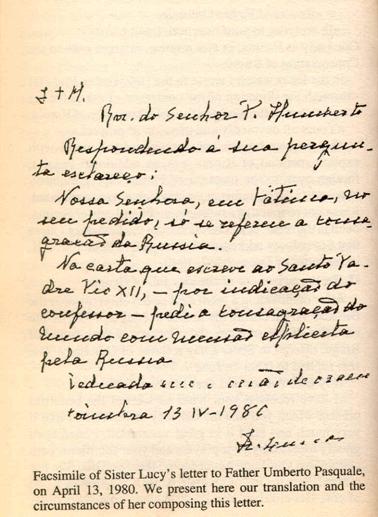 J + M.
Rev. do Senhor P. Humberto
Respondendo á sua pergun-
ta esclareço:
Nossa Senhora, em Fátima, no
seu pedido, só se referia a consa-
gração da Russia.
Na carta que escreve ao Santo Pa-
dre Pio XII, – por indicação do
confessor – pedi a consagração do
mundo com mensão esplicita
pela Russia
Dedicada
Coimbra 13 IV-1980
Facsimile of Sister Lucy's letter to Father Umberto Pasquale,
on April 13, 1980. We present here our translation and the
circumstances of her composing this letter.